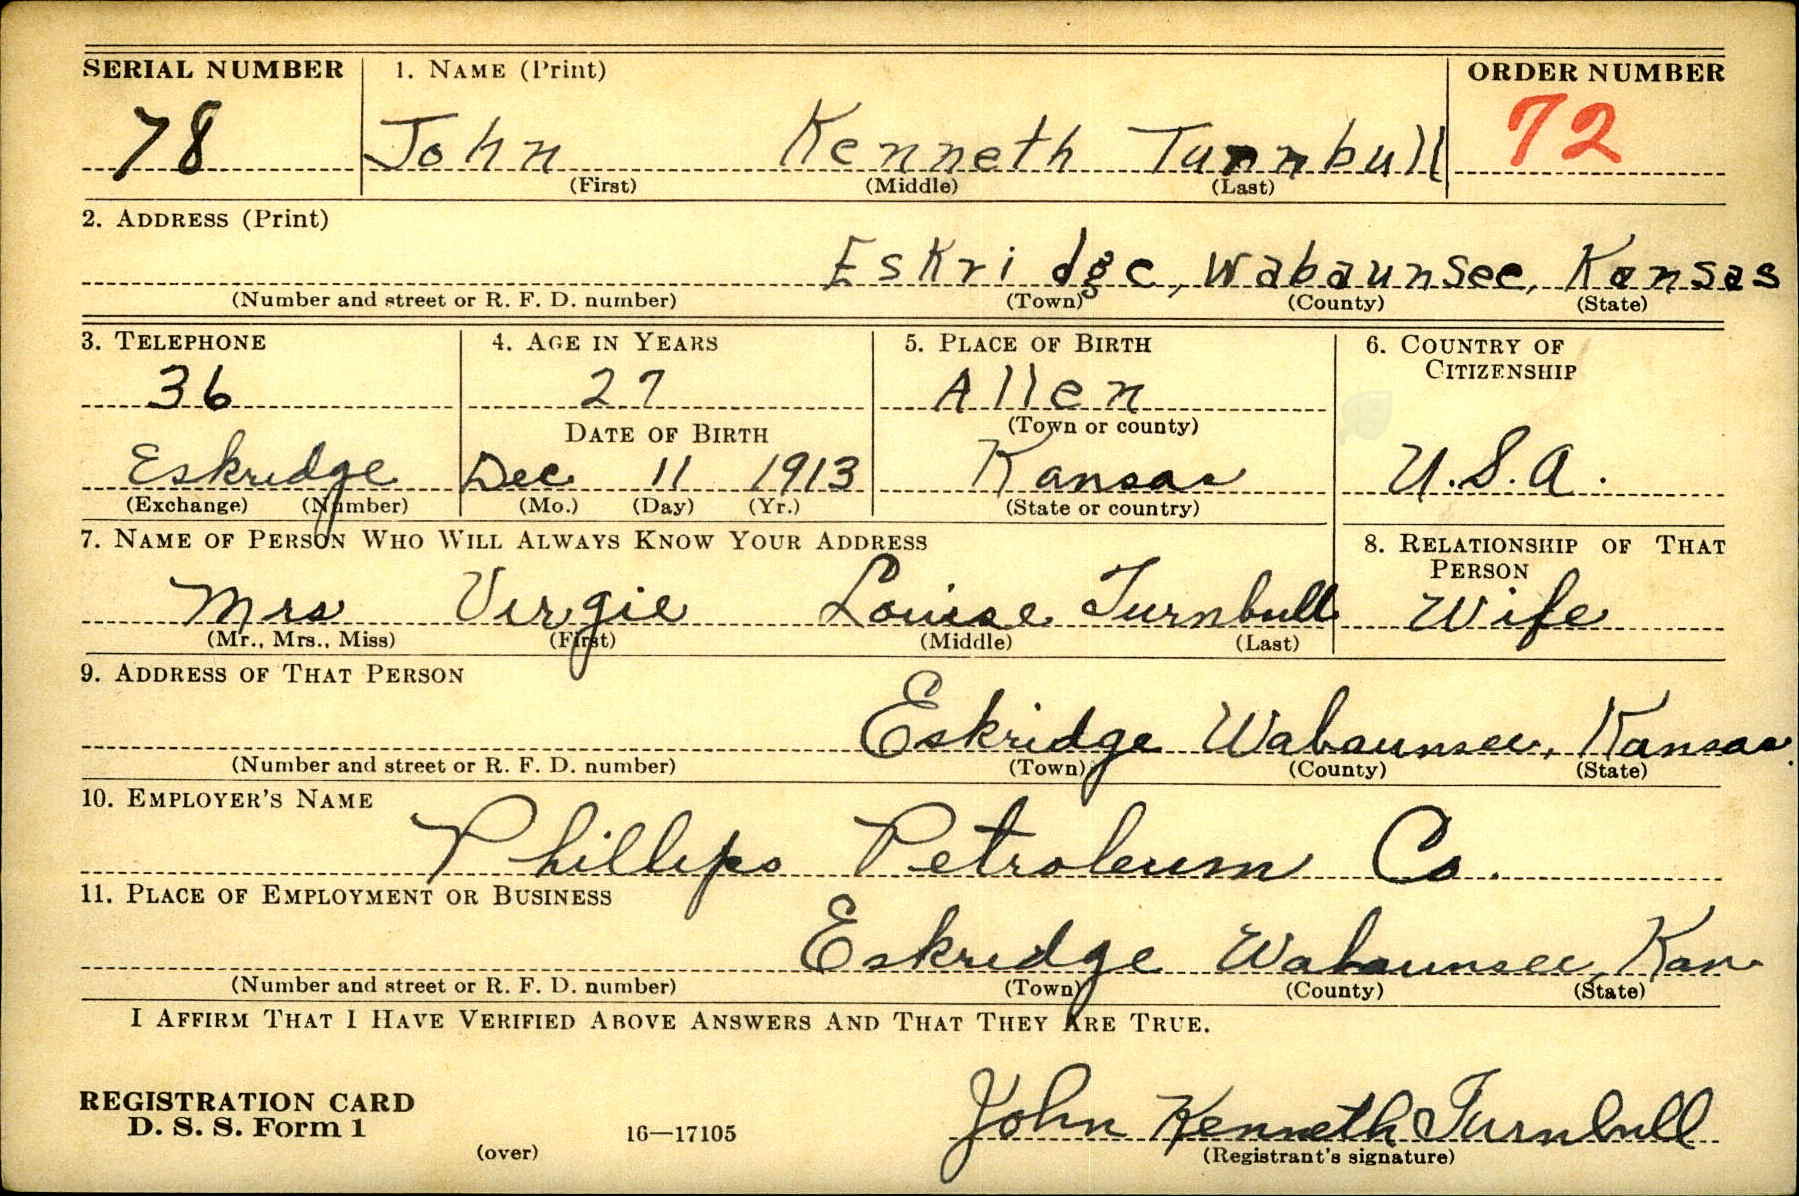 SERIAL NUMBER 1. NAME (Print) ORDER NUMBER
78 John Kenneth Turnbull 72
(First) (Middle) (Last)
2. ADDRESS (Print)
Eskridge, Wabaunsee, Kansas
(Number and street or R. F. D. number) (Town) (County) (State)
3. TELEPHONE 4. AGE IN YEARS 5. PLACE OF BIRTH 6. COUNTRY OF
CITIZENSHIP
36 27 Allen
DATE OF BIRTH (Town or county)
Eskridge Dec 11 1913 Kansas U.S.A.
(Exchange) (Number) (Mo.) (Day) (Yr.) (State or country)
7. NAME OF PERSON WHO WILL ALWAYS KNOW YOUR ADDRESS 8. RELATIONSHIP OF THAT
PERSON
Mrs Virgie Louise Turnbull Wife
(Mr., Mrs., Miss) (First) (Middle) (Last)
9. ADDRESS OF THAT PERSON
Eskridge Wabaunsee, Kansas.
(Number and street or R. F. D. number) (Town) (County) (State)
10. EMPLOYER'S NAME
Phillips Petroleum Co.
11. PLACE OF EMPLOYMENT OR BUSINESS
Eskridge Wabaunsee, Kan
(Number and street or R. F. D. number) (Town) (County) (State)
I AFFIRM THAT I HAVE VERIFIED ABOVE ANSWERS AND THAT THEY ARE TRUE.
REGISTRATION CARD
D. S. S. Form 1 16—17105 John Kenneth Turnbull
(over) (Registrant's signature)